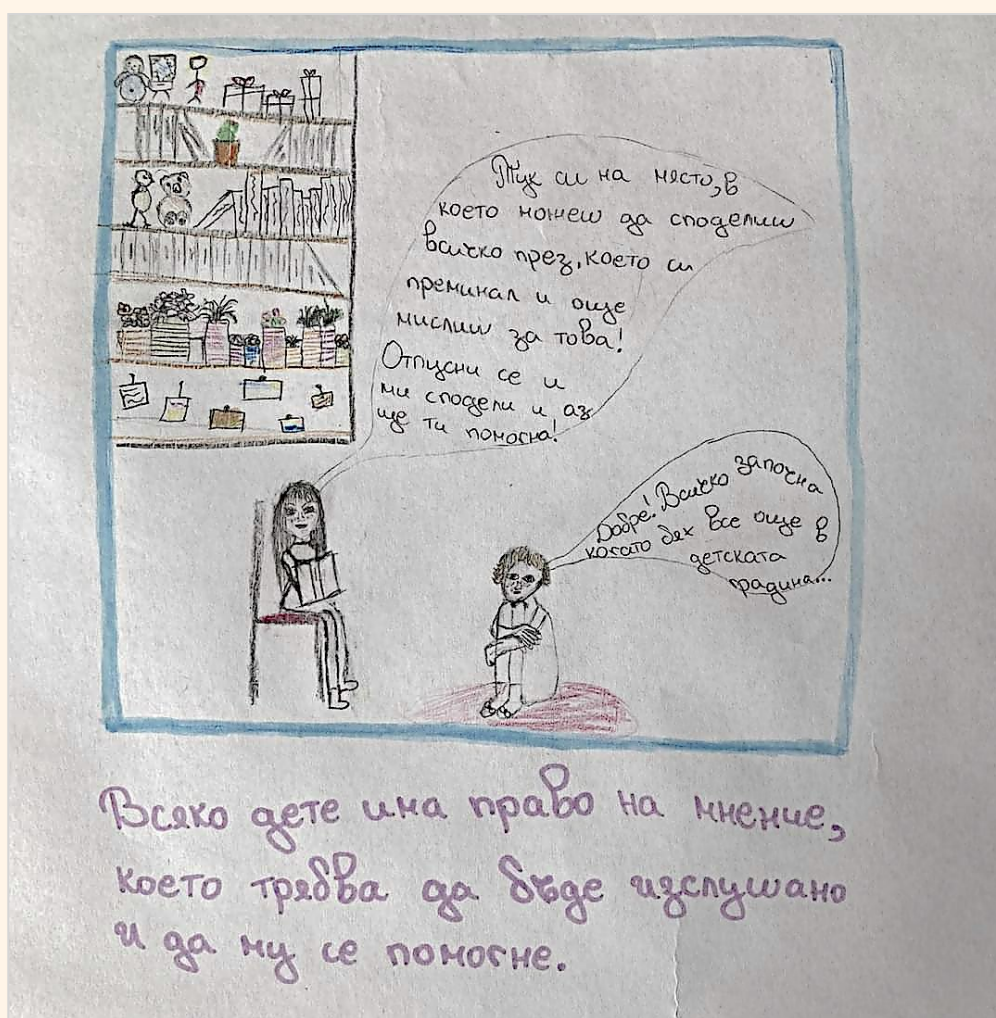 Тук си на място, в
което можеш да споделиш
всичко през, което си
преминал и още
мислиш за това!
Отпусни се и
ми сподели и аз
ще ти помогна!
Добре! Всичко започна
когато бях все още в
детската
градина...
Всяко дете има право на мнение,
което трябва да бъде изслушано
и да му се помогне.